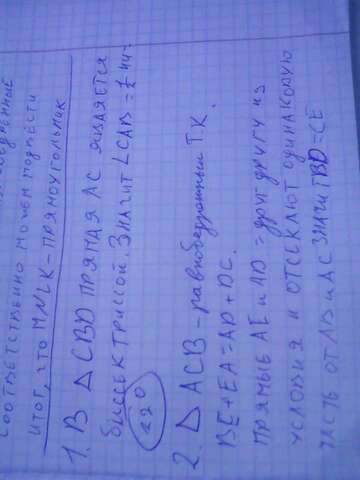 соответственно можем подвести
итог, что MNLK - прямоугольник
1. В △ CBD прямая AC является
биссектриссой. Значит ∠CAB = ½ 44 =
22°
2. △ ACB - равнобедренный т.к.
BE + EA = AD + DC.
прямые AE и AD = друг другу из
условия и отсекают одинаковую
часть от AB и AC значит BD = CE